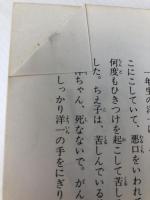 こにこしていて、悪口をいわれ
何度もひきつけを起こして苦し
した。ちえ子は、苦しんでいる
ちゃん、死なないで。がん
しっかり洋一の手をにぎり